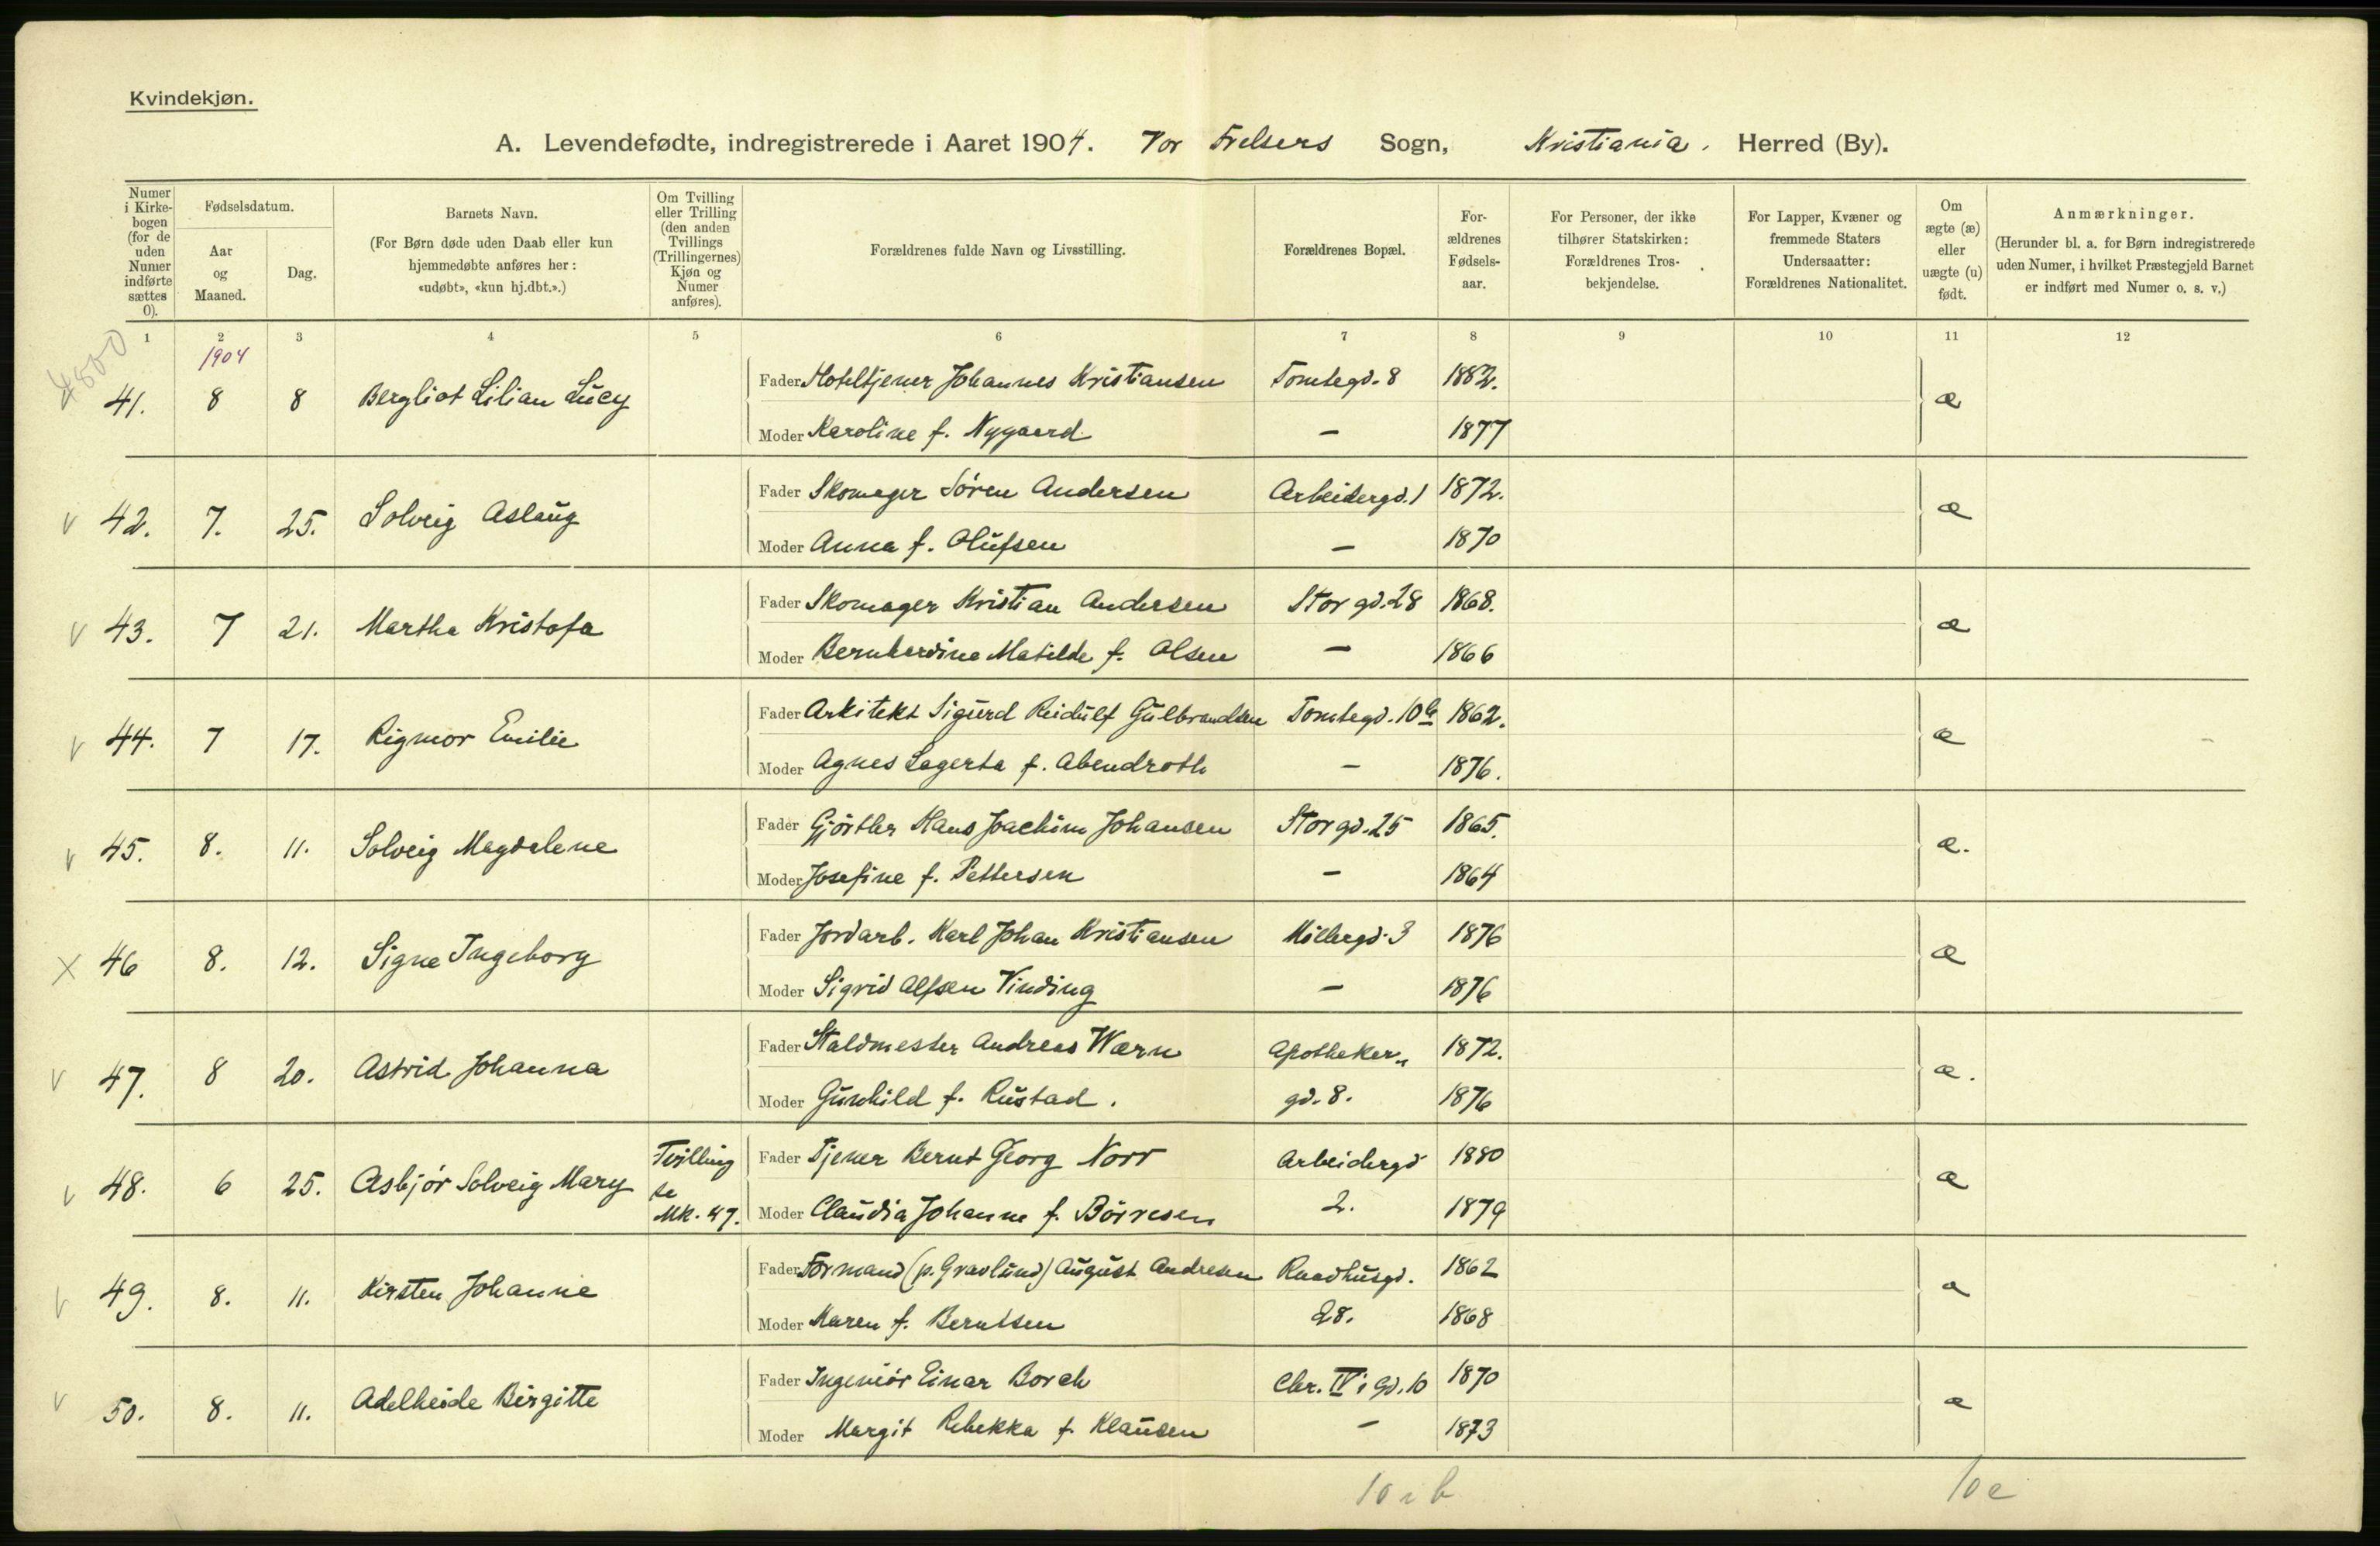 Kvindekjøn.
A. Levendefødte, indregistrerede i Aaret 1904. Vor Frelsers Sogn, Kristiania. Herred (By).
Numer i Kirkebogen (for de uden Numer indførte sættes 0).
Fødselsdatum.
Aar og Maaned.
Dag.
Barnets Navn.
(For Børn døde uden Daab eller kun hjemmedøbte anføres her: «udøbt», «kun hj.dbt.».)
Om Tvilling eller Trilling (den anden Tvillings (Trillingernes) Kjøn og Numer anføres).
Forældrenes fulde Navn og Livsstilling.
Forældrenes Bopæl.
Forældrenes Fødselsaar.
For Personer, der ikke tilhører Statskirken: Forældrenes Trosbekjendelse.
For Lapper, Kvæner og fremmede Staters Undersaatter: Forældrenes Nationalitet.
Om ægte (æ) eller uægte (u) født.
Anmærkninger.
(Herunder bl. a. for Børn indregistrerede uden Numer, i hvilket Præstegjeld Barnet er indført med Numer o. s. v.)
1 2 3 4 5 6 7 8 9 10 11 12
4800
1904
41. 8 8 Bergliot Lilian Lucy Fader Hoteltjener Johannes Kristiansen Tomtegd. 8 1882. æ
Moder Karoline f. Nygaard — 1877
v 42. 7. 25. Solveig Aslaug Fader Skomager Søren Andersen Arbeidergd. 1 1872. æ
Moder Anna f. Olufsen — 1870
v 43. 7 21. Martha Kristofa Fader Skomager Kristian Andersen Storgd. 28 1868. æ
Moder Bernhardine Matilde f. Olsen — 1866
v 44. 7 17. Rigmor Emilie Fader Arkitekt Sigurd Reidulf Gulbrandsen Tomtegd. 10b 1862. æ
Moder Agnes Lagerta f. Abendroth — 1876.
v 45. 8. 11. Solveig Magdalene Fader Gjørtler Hans Joachim Johansen Storgd. 25 1865. æ.
Moder Josefine f. Pettersen — 1864
x 46 8. 12. Signe Ingeborg Fader Jordarb. Karl Johan Kristiansen Møllergd. 3 1876 æ
Moder Sigrid Alfsen Vinding — 1876
v 47. 8 20. Astrid Johanna Fader Staldmester Andreas Wærn Apotheker- 1872. æ.
Moder Gunhild f. Rustad. gd. 8. 1876
v 48. 6 25. Asbjør Solveig Mary Tvilling se Mk. 47. Fader Tjener Bernt Georg Norr Arbeidergd 1880 æ
Moder Claudia Johanne f. Børresen 2. 1879
v 49. 8. 11. Kirsten Johanne Fader Formand (p. Gravlund) August Andresen Raadhusgd. 1862 æ
Moder Maren f. Berntsen 28. 1868
v 50. 8. 11. Adelheide Birgitte Fader Ingeniør Einar Borch Chr. IV's Gd. 10 1870 æ
Moder Margit Rebekka f. Klausen — 1873
10 i b 10 e